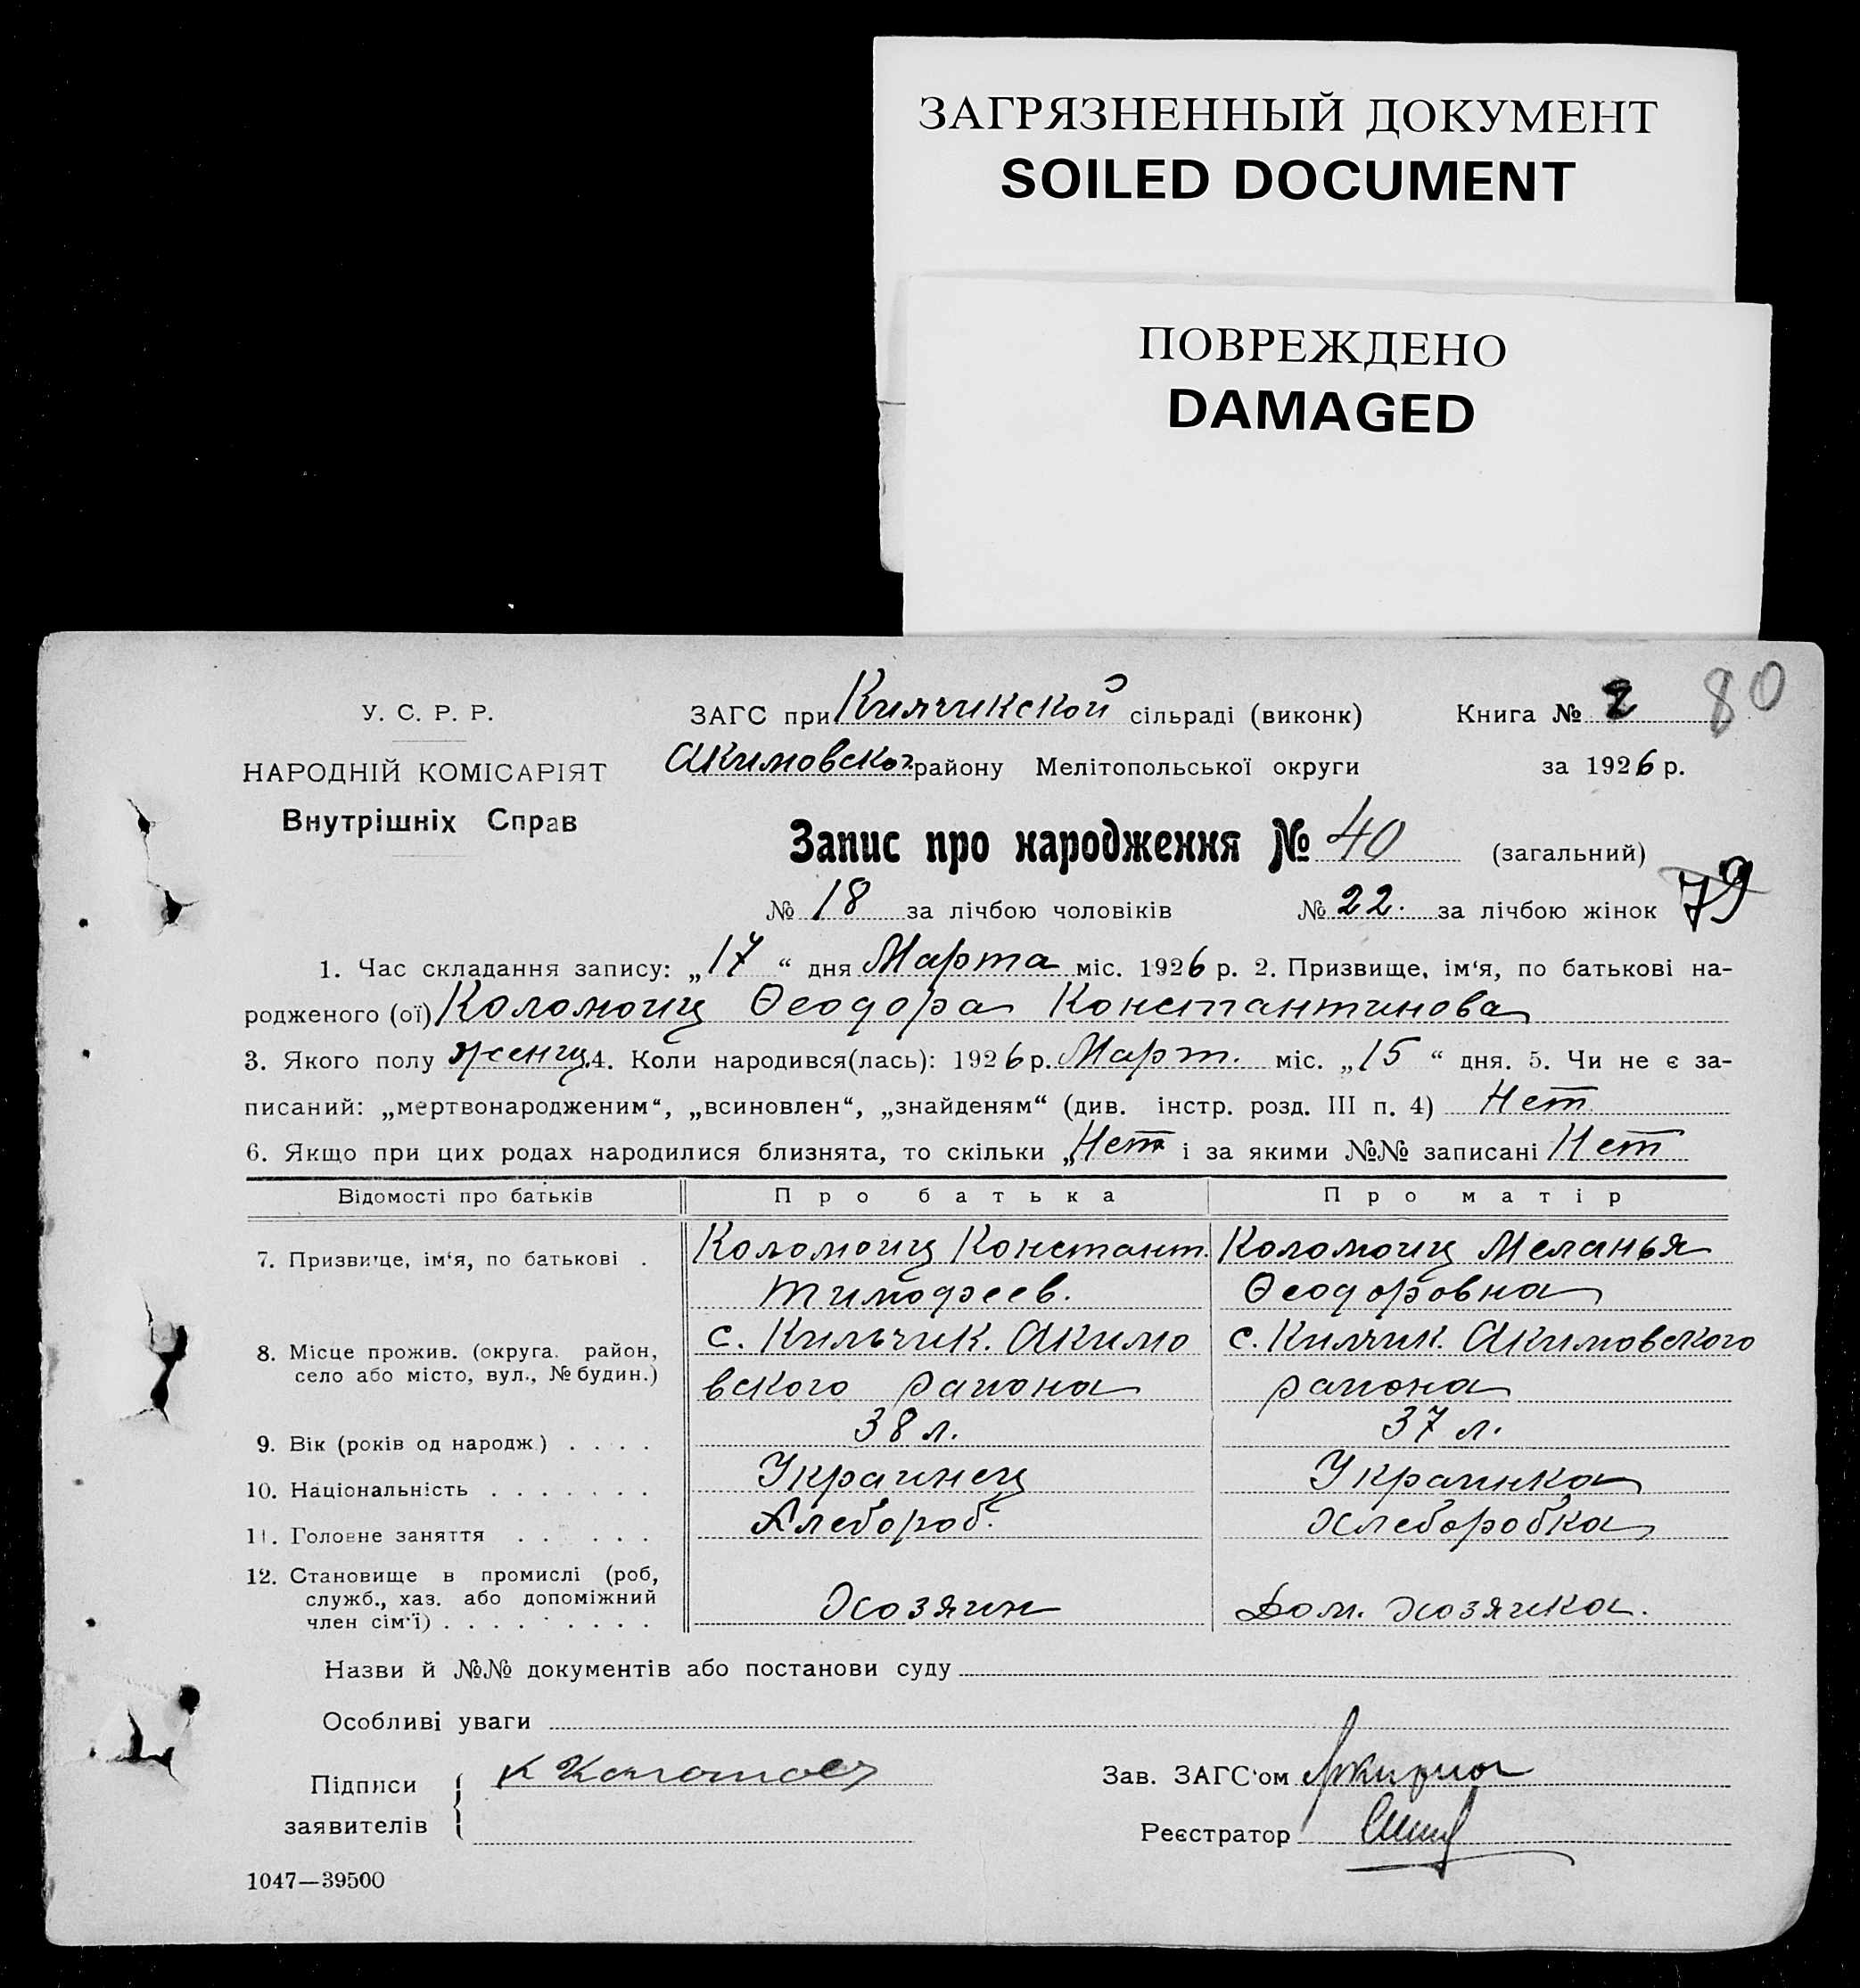 ЗАГРЯЗНЕННЫЙ ДОКУМЕНТ
SOILED DOCUMENT
ПОВРЕЖДЕНО
DAMAGED
80
У. С. Р. Р.
НАРОДНІЙ КОМІСАРІЯТ
Внутрішніх Справ
ЗАГС при Килчикской сільраді (виконк) Книга № 2
Акимовског. району Мелітопольської округи за 1926 р.
Запис про народження № 40 (загальний)
79
№ 18 за лічбою чоловіків № 22. за лічбою жінок
1. Час складання запису: „17“ дня Марта міс. 1926 р. 2. Призвище, ім‘я, по батькові на-
родженого (ої) Коломоиц Ѳеодора Константинова
3. Якого полу женщ. 4. Коли народився(лась): 1926 р. Март. міс. „15“ дня. 5. Чи не є за-
писаний: „мертвонародженим“, „всиновлен“, „знайденям“ (див. інстр. розд. III п. 4) Нет
6. Якщо при цих родах народилися близнята, то скільки „Нет і за якими №№ записані Нет
Відомості про батьків Про батька Про матір
7. Призвище, ім‘я, по батькові . Коломоиц Констант. Коломоиц Меланья
Тимофеев. Ѳеодоровна
8. Місце прожив. (округа. район, с. Кильчик. Акимо с. Килчик. Акимовского
село або місто, вул., № будин.) вского раиона раиона
9. Вік (років од народж.) . . . . 38 л. 37 л.
10. Національність . . . . . . . Украинец Украинка
11. Головне заняття . . . . . Хлебороб. Хлеборобка
12. Становище в промислі (роб,
служб., хаз. або допоміжний Хозяин Дом. хозяика.
член сім‘ї) . . . . . . . .
Назви й №№ документів або постанови суду
Особливі уваги
Підписи
заявителів
Зав. ЗАГС‘ом
Реєстратор
1047—39500